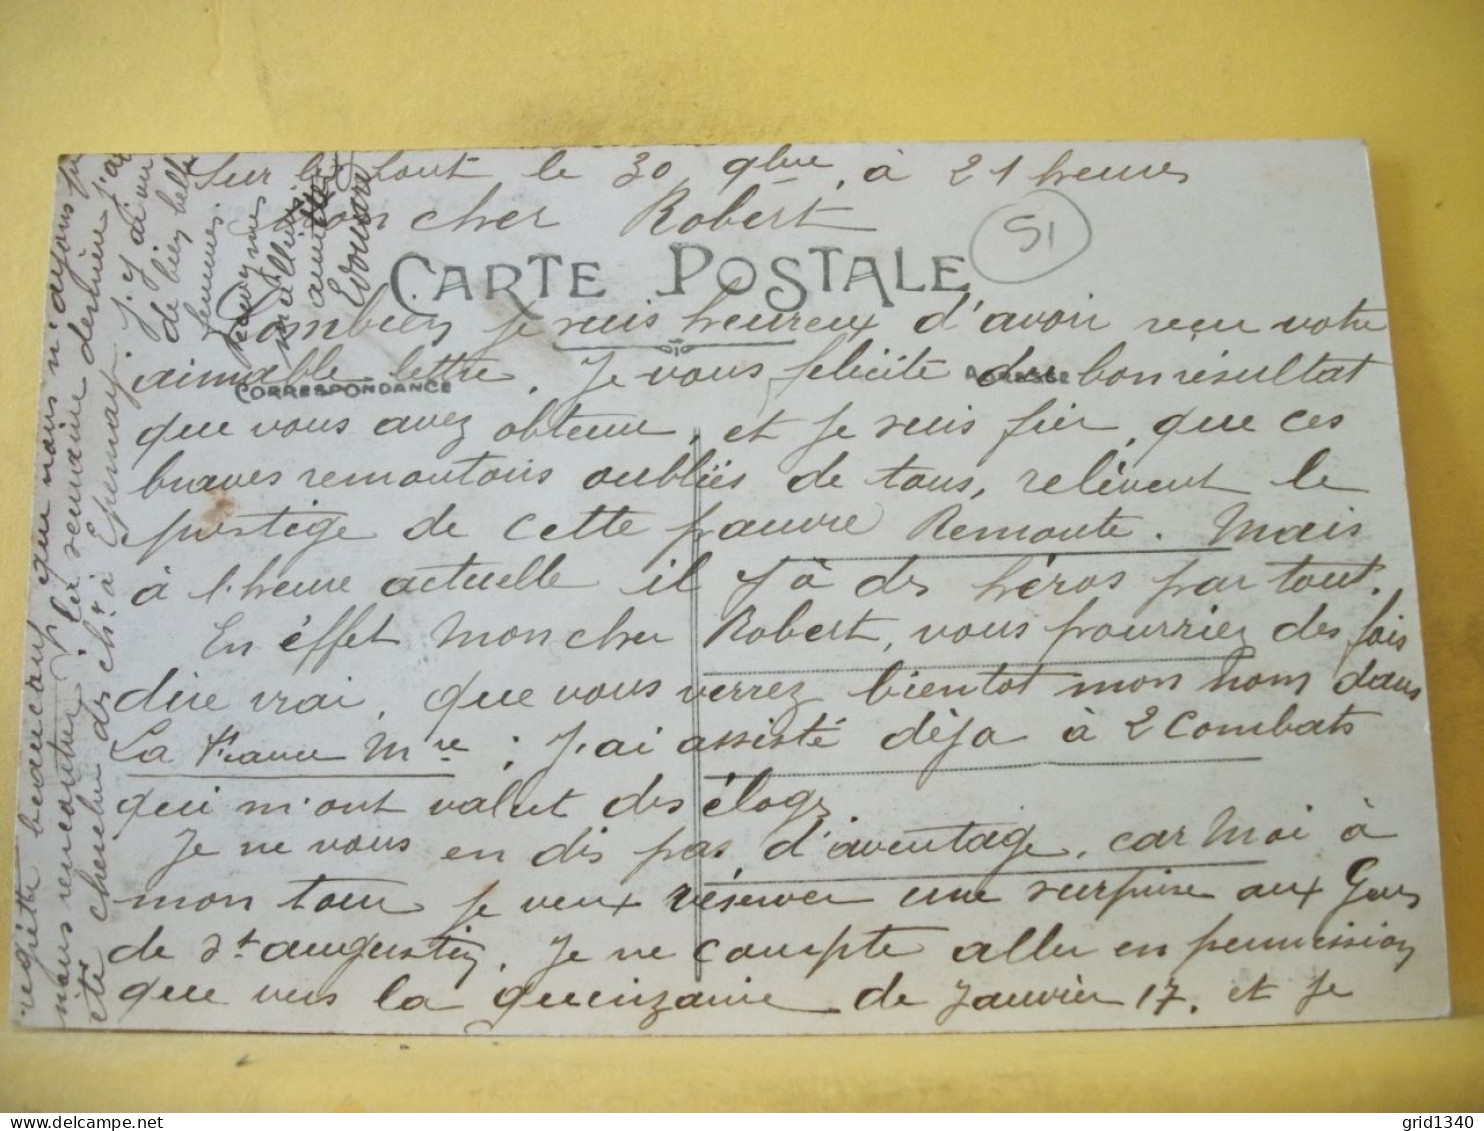 Sur le front le 30 9bre, à 21 heures
Mon cher Robert
51
CARTE POSTALE
Combien je suis heureux d'avoir reçu votre
aimable lettre. Je vous félicite du bon résultat
CORRESPONDANCE
ADRESSE
que vous avez obtenu, et je suis fier, que ces
braves remontois oubliés de tous, relèvent le
prestige de cette pauvre Remonte. Mais
à l'heure actuelle il y à des héros partout.
En éffet Mon cher Robert, vous pourriez des fois
dire vrai, que vous verrez bientot mon nom dans
La France Mre ; J'ai assisté déja à 2 Combats
qui m'ont valut des éloges
Je ne vous en dis pas d'aventage, car Moi à
mon tour je veux réserver une surprise aux Gens
de St augustin. Je ne compte aller en permission
que vers la quinzaine de Janvier 17. et je
regrette beaucoup que nous n'ayons pu
nous rencontrer. La semaine dernière j'ai
été chercher des chx à Epernay
j'y ai vu
de bien belles
femmes.
Recevez mes
meilleures
amitiés
Edouard
grid1340